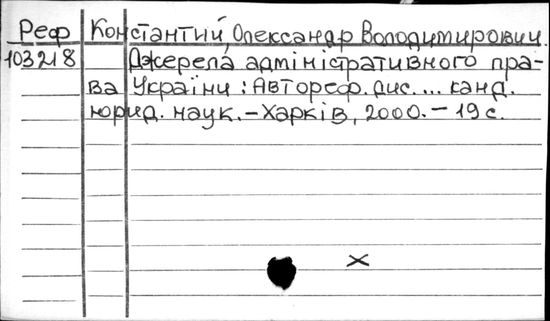 Реф Константий, Олександр Володимирович.
103218 Джерела адміністративного пра-
ва України : Автореф. дис. ... канд.
юрид. наук. – Харків, 2000. – 19 с.